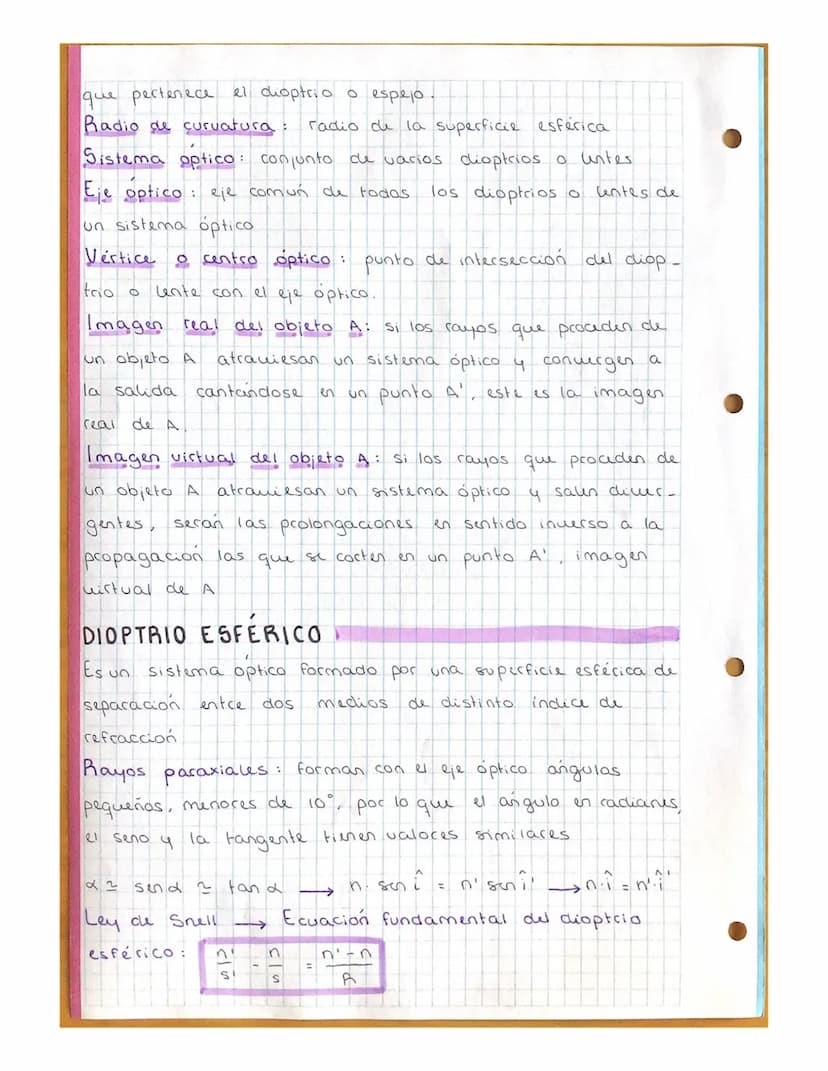 que pertenece el dioptrio o espejo.
Radio de curvatura: radio de la superficie esférica
Sistema óptico: conjunto de varios dioptrios o lentes
Eje óptico: eje común de todos los dioptrios o lentes de
un sistema óptico
Vértice o centro óptico: punto de intersección del diop-
trio o lente con el eje óptico.
Imagen real del objeto A: si los rayos que proceden de
un objeto A atraviesan un sistema óptico y convergen a
la salida cortándose en un punto A', este es la imagen
real de A.
Imagen virtual del objeto A: si los rayos que proceden de
un objeto A atraviesan un sistema óptico y salen diver-
gentes, serán las prolongaciones en sentido inverso a la
propagación las que se corten en un punto A', imagen
virtual de A
DIOPTRIO ESFÉRICO
Es un sistema óptico formado por una superficie esférica de
separación entre dos medios de distinto índice de
refracción
Rayos paraxiales: forman con el eje óptico ángulos
pequeños, menores de 10°, por lo que el ángulo en radianes,
el seno y la tangente tienen valores similares
α ≃ sen α ≃ tan α → n· sen î = n' sen î' → n·î = n'·î'
Ley de Snell → Ecuación fundamental del dioptrio
esférico: n'/s' - n/s = n'-n/R